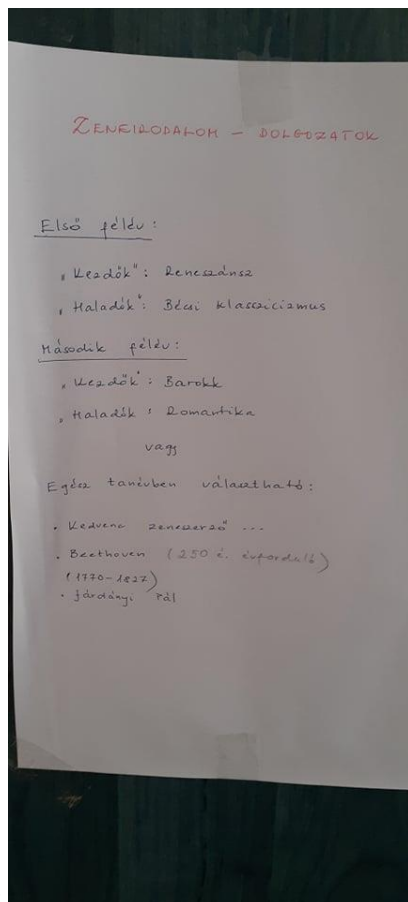 ZENEIRODALOM - DOLGOZATOK
Első félév:
„Kezdők": Reneszánsz
„Haladók": Bécsi klasszicizmus
Második félév:
„Kezdők": Barokk
„Haladók: Romantika
vagy
Egész tanévben választható:
• Kedvenc zeneszerző ...
• Beethoven (250 é. évforduló)
(1770-1827)
• Járdányi Pál